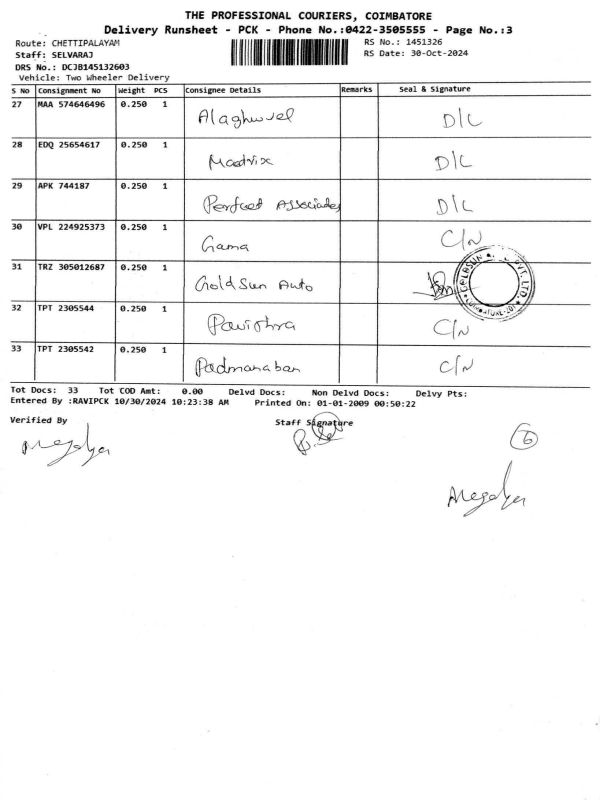 THE PROFESSIONAL COURIERS, COIMBATORE
Delivery Runsheet - PCK - Phone No.:0422-3505555 - Page No.:3
Route: CHETTIPALAYAM
RS No.: 1451326
Staff: SELVARAJ
RS Date: 30-Oct-2024
DRS No.: DCJB145132603
Vehicle: Two Wheeler Delivery
S No Consignment No Weight PCS Consignee Details Remarks Seal & Signature
27 MAA 574646496 0.250 1 D/L
28 EDQ 25654617 0.250 1 D/L
29 APK 744187 0.250 1 Perfect Associates D/L
30 VPL 224925373 0.250 1 Gama C/N
31 TRZ 305012687 0.250 1 GoldSun Auto
32 TPT 2305544 0.250 1 C/N
33 TPT 2305542 0.250 1 Padmanaban C/N
Tot Docs: 33 Tot COD Amt: 0.00 Delvd Docs: Non Delvd Docs: Delvy Pts:
Entered By :RAVIPCK 10/30/2024 10:23:38 AM Printed On: 01-01-2009 00:50:22
Verified By
Staff Signature
6